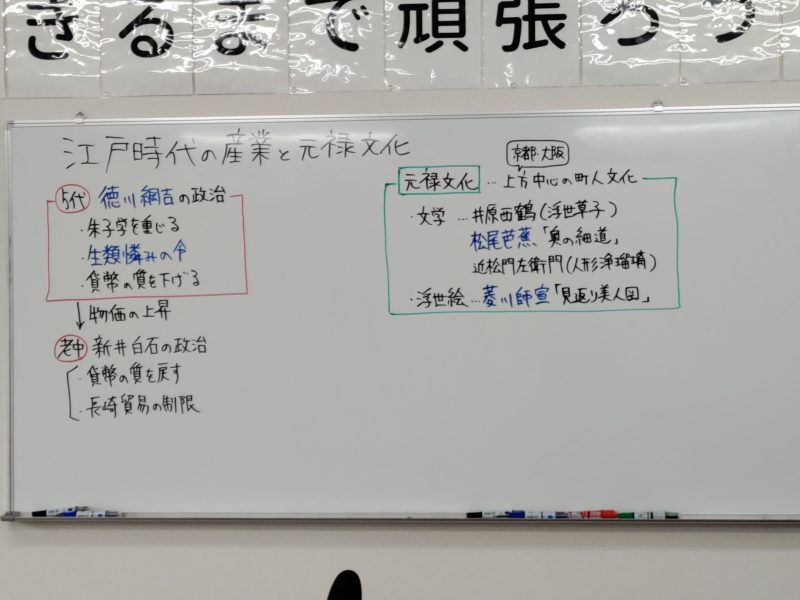 きるまで頑張ろう
江戸時代の産業と元禄文化
5代 徳川綱吉の政治
・朱子学を重じる
・生類憐みの令
・貨幣の質を下げる
↓物価の上昇
老中 新井白石の政治
・貨幣の質を戻す
・長崎貿易の制限
京都・大阪
元禄文化…上方中心の町人文化
・文学…井原西鶴(浮世草子)
松尾芭蕉「奥の細道」
近松門左衛門(人形浄瑠璃)
・浮世絵…菱川師宣「見返り美人図」